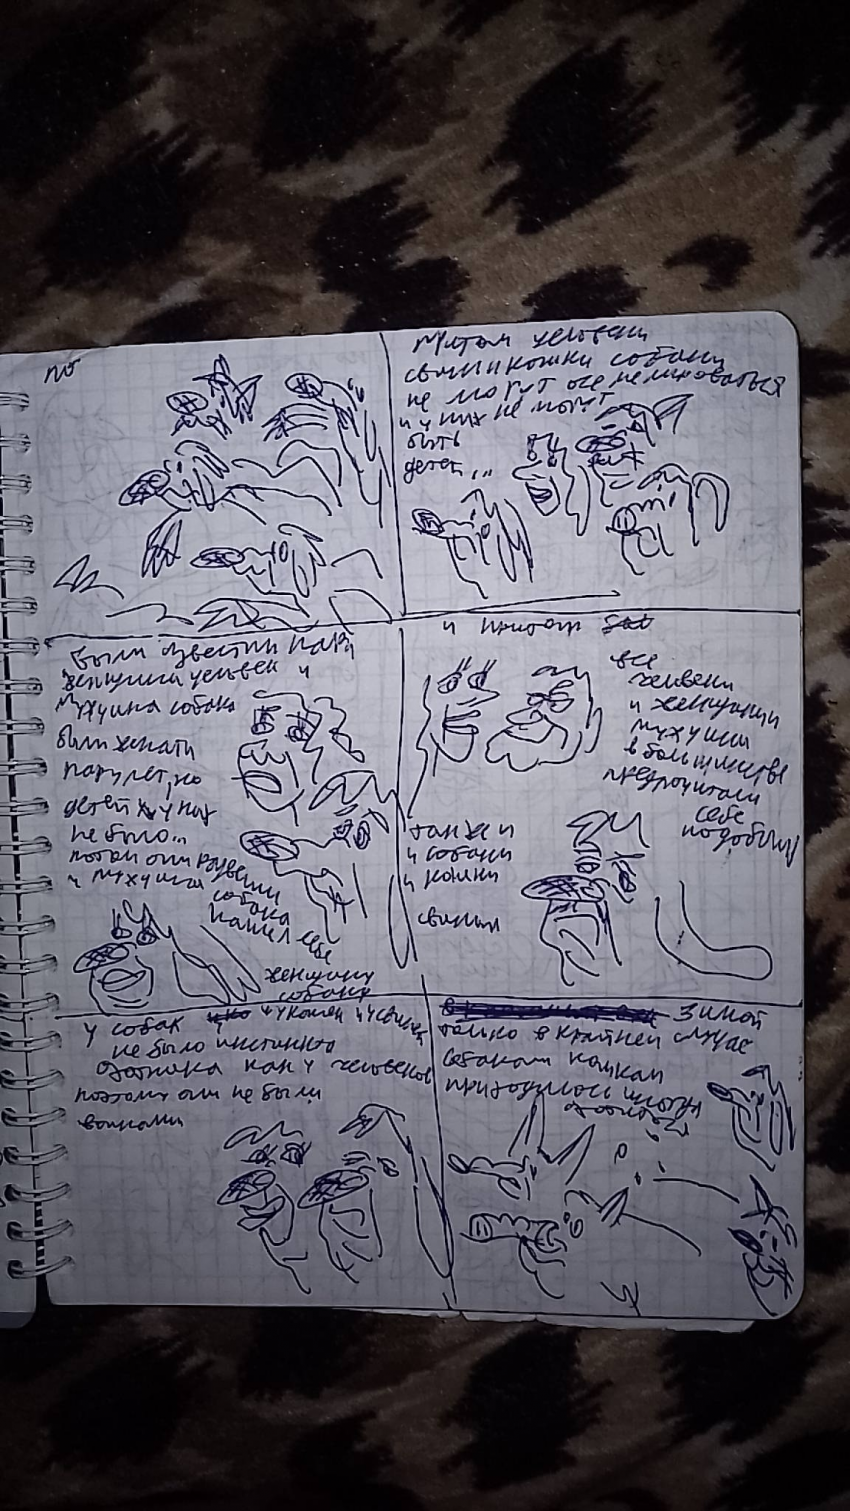 но
притом человеки
свиньи кошки собаки
не могут
и у них не могут
быть
детей...
были известны пара
женщина человек и
мужчина собака
были женаты
пару лет, но
детей у них
не было...
потом они развелись
и мужчина
собака
нашел себе
женщину
собаку
и притом
все
человеки
и женщины
мужчины
в большинстве
предпочитали
себе
подобных
также и
и собаки
и кошки
свиньи
у собак и у кошек и у свиней
не было инстинкта
охотника как у человеков
поэтому они не были
воинами
зимой
только в крайнем случае
собакам кошкам
приходилось
охотиться